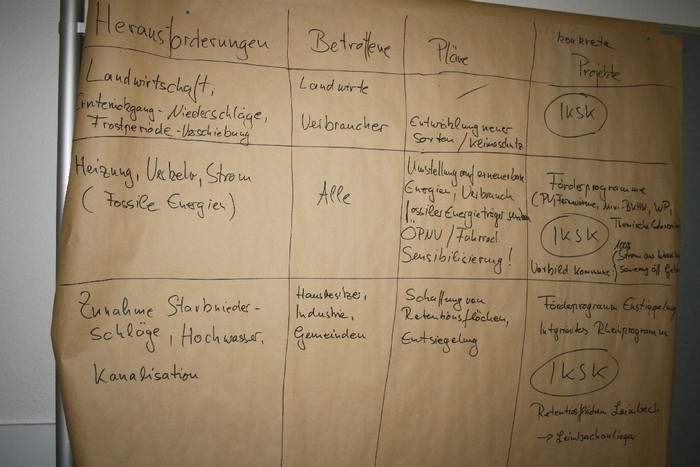 Herausforderungen
Betroffene
Pläne
konkrete
Projekte
Landwirtschaft,
Ernterückgang - Niederschläge,
Frostperiode - Verschiebung
Landwirte
Verbraucher
Entwicklung neuer
Sorten / Klimaschutz
IKSK
Heizung, Verkehr, Strom
(Fossile Energien)
Alle
Umstellung auf erneuerbare
Energien, Verbrauch
fossiler Energieträger senken
ÖPNV / Fahrrad
Sensibilisierung!
Förderprogramme
(PV, Fernwärme, Mini-BHKW, WP,
Thermische
IKSK
100%
Strom aus
Vorbild Kommune:
Zunahme Starknieder-
schläge, Hochwasser,
Kanalisation
Hausbesitzer,
Industrie,
Gemeinden
Schaffung von
Retentionsflächen,
Entsiegelung
Förderprogramm Entsiegelung
Integriertes Rheinprogramm
IKSK
Retentionsflächen Leimbach
→ Leimbachanlieger